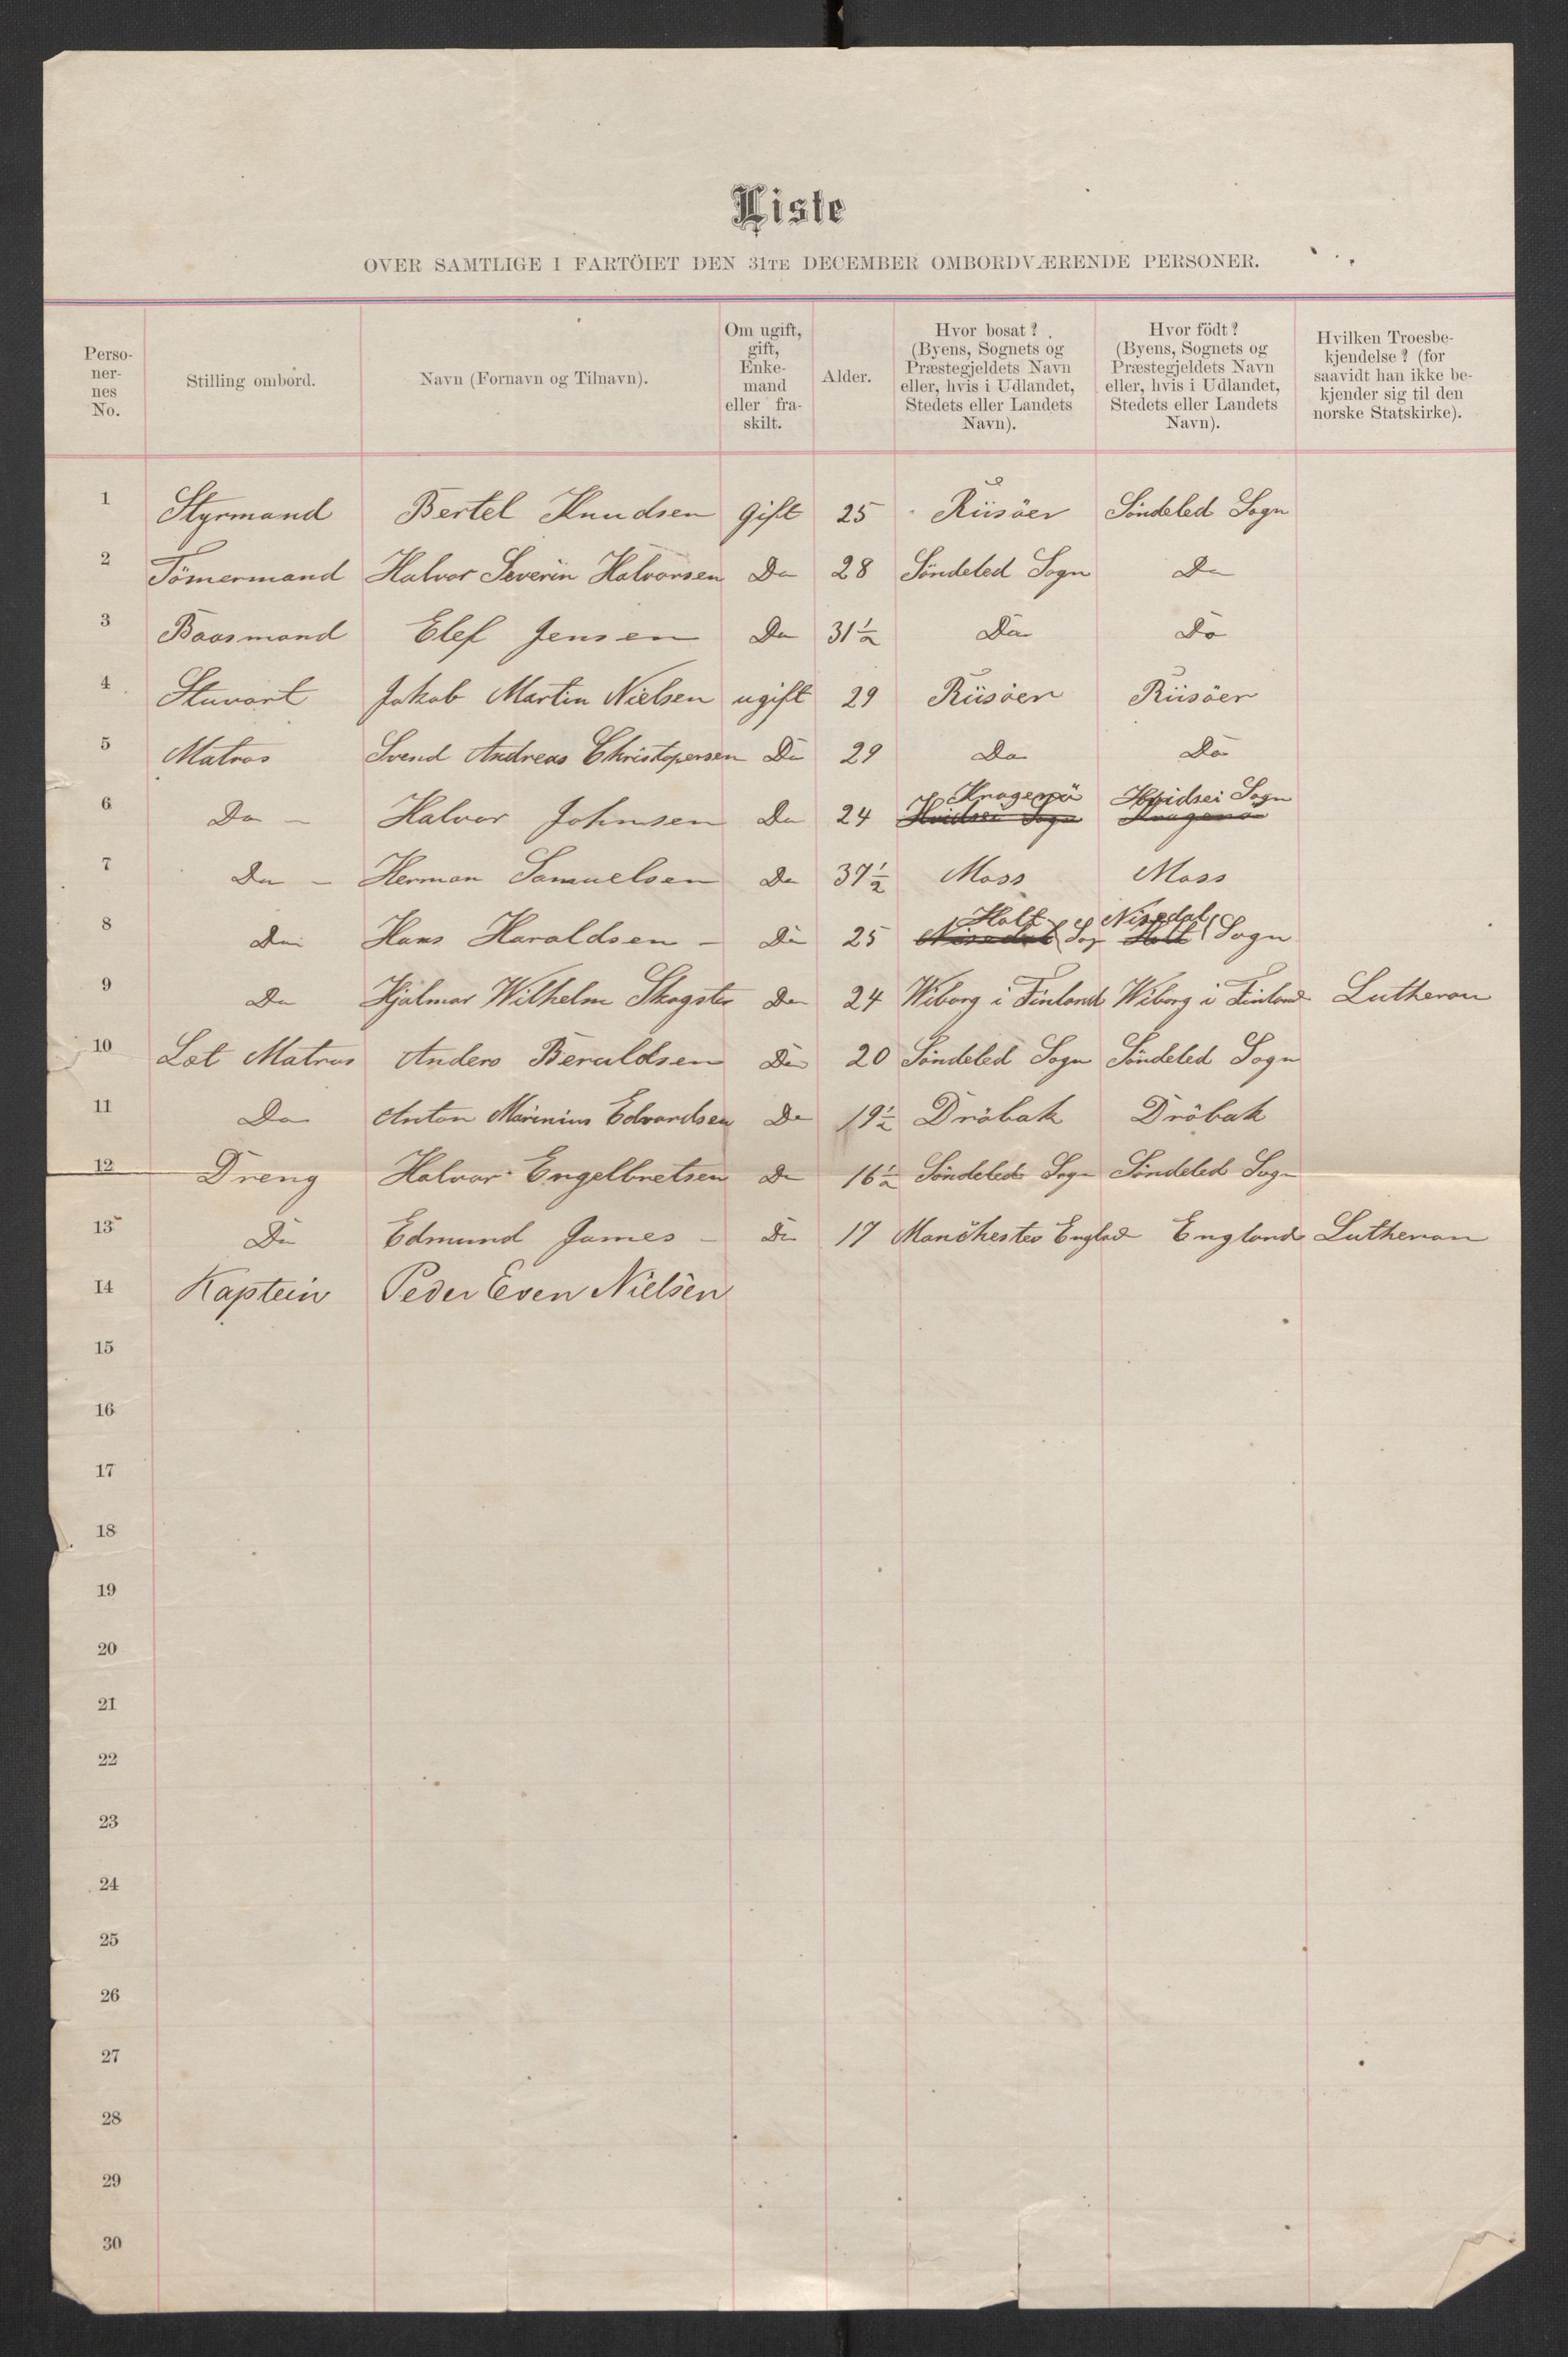 Liste
OVER SAMTLIGE I FARTÖIET DEN 31TE DECEMBER OMBORDVÆRENDE PERSONER.
Perso-
ner-
nes
No.
Stilling ombord.
Navn (Fornavn og Tilnavn).
Om ugift,
gift,
Enke-
mand
eller fra-
skilt.
Alder.
Hvor bosat?
(Byens, Sognets og
Præstegjeldets Navn
eller, hvis i Udlandet,
Stedets eller Landets
Navn).
Hvor födt?
(Byens, Sognets og
Præstegjeldets Navn
eller, hvis i Udlandet,
Stedets eller Landets
Navn).
Hvilken Troesbe-
kjendelse? (for
saavidt han ikke be-
kjender sig til den
norske Statskirke).
1 Styrmand Bertel Knudsen gift 25 Riisöer Söndeled Sogn
2 Tömermand Halvor Severin Halvorsen Do 28 Söndeled Sogn Do
3 Baasmand Elef Jensen Do 31½ Do Do
4 Stuvart Jakob Martin Nielsen ugift 29 Riisöer Riisöer
5 Matros Svend Andreas Christopersen Do 29 Do Do
Kragerö Hvidsei Sogn
6 Do - Halvor Johnsen Do 24 Hvidsei Sogn Kragerö
7 Do - Herman Samuelsen Do 37½ Moss Moss
Holt Nisedal
8 Do Hans Haraldsen - Do 25 Nisedal Sog Holt Sogn
9 Do Hjalmar Wilhelm Skogster Do 24 Wiborg i Finland Wiborg i Finland Lutheran
10 Let Matros Anders Beraldsen Do 20 Söndeled Sogn Söndeled Sogn
11 Do Anton Marinius Edvardsen Do 19½ Dröbak Dröbak
12 Dreng Halvor Engelbretsen Do 16½ Söndeled Sogn Söndeled Sogn
13 Do Edmund James - Do 17 Manchester Englad England Lutheran
14 Kaptein Peder Even Nielsen
15
16
17
18
19
20
21
22
23
24
25
26
27
28
29
30